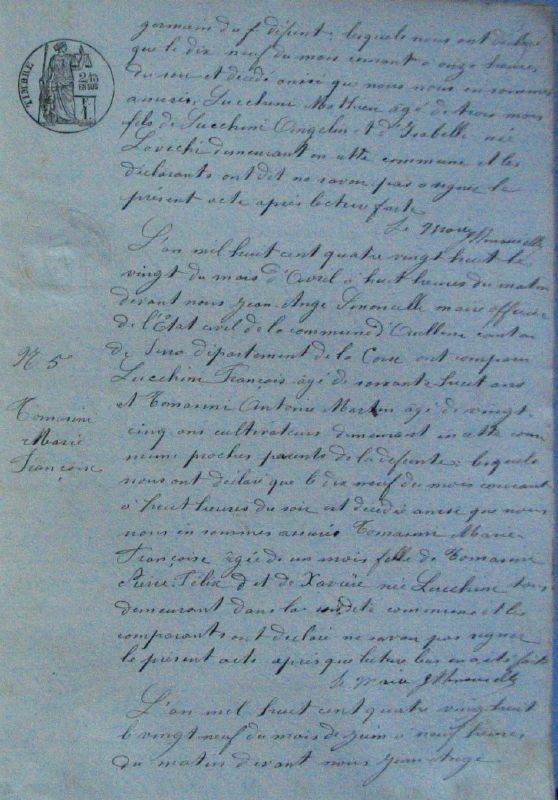 TIMBRE
2/10
EN SUS
germain du f défunt, lesquels nous ont déclaré
que le dix neuf du mois courant a onze heures
du soir est décédé ainsi que nous nous en sommes
assurés, Lucchini Mathieu âgé de trois mois
fils de Lucchini Angelin et d'Isabelle née
demeurant en cette commune et les
déclarants ont dit ne savoir pas signer le
présent acte après lecture faite
Le Maire
L'an mil huit cent quatre vingt huit le
vingt du mois d'Avril à huit heures du matin
devant nous Jean Ange Simonelli maire officier
de l'Etat civil de la commune d'Aullene canton
de Serra département de la Corse ont comparu
Lucchini François âgé de soixante huit ans
Nº 5
et Tomasini Antoine Martin âgé de vingt
Tomasini
Marie
Françoise
cinq ans cultivateurs demeurant en cette com
mune proches parents de la défunte; lesquels
nous ont déclaré que le dix neuf du mois courant
à huit heures du soir est décédée ainsi que nous
nous en sommes assurés Tomasini Marie
Françoise âgée de un mois fille de Tomasini
Pierre Félix et de Xavière née Lucchini tous
demeurant dans la susdite commune et les
comparants ont déclaré ne savoir pas signer
le présent acte après que lecture leur en a été faite
Le Maire
L'an mil huit cent quatre vingt huit
le vingt neuf du mois de Juin à neuf heures
du matin devant nous Jean Ange